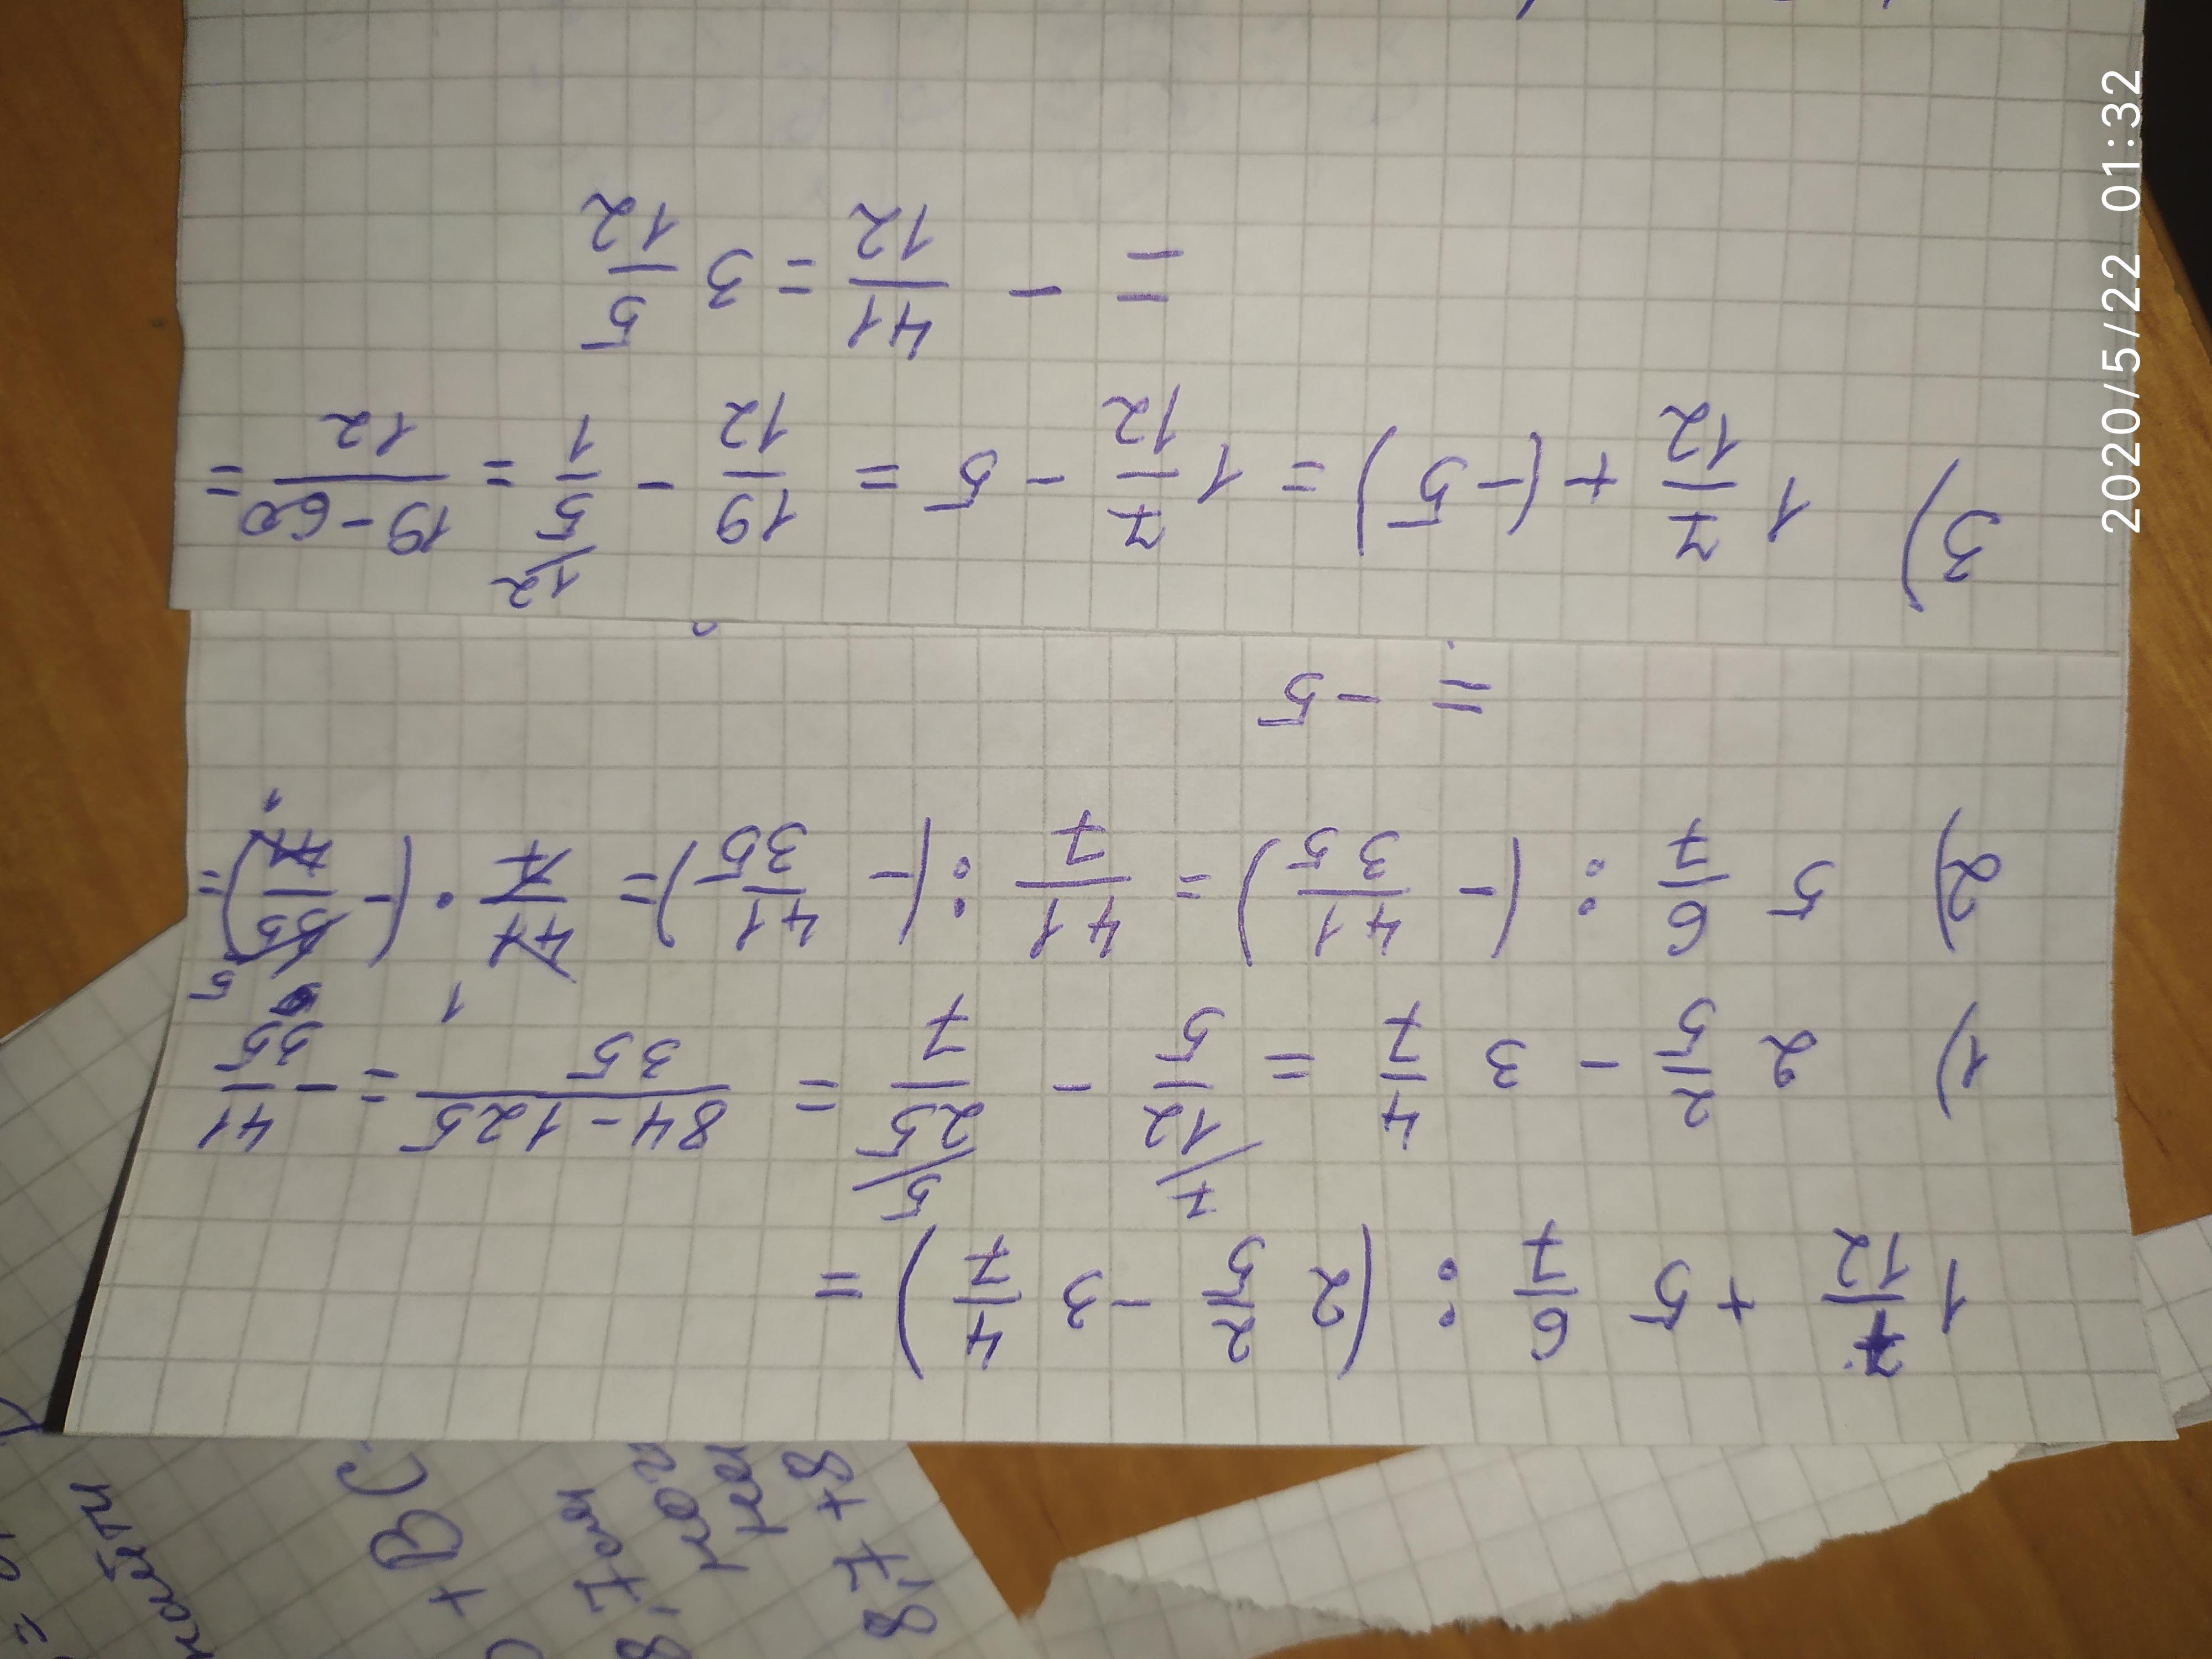 1 7/12 + 5 6/7 : (2 2/5 - 3 4/7) =
1) 2 2/5 - 3 4/7 = 12/5 - 25/7 = (84 - 125)/35 = - 41/35
2) 5 6/7 : (- 41/35) = 41/7 : (- 41/35) = 41/7 · (- 35/41) =
= - 5
3) 1 7/12 + (-5) = 1 7/12 - 5 = 19/12 - 5/1 = (19 - 60)/12 =
= - 41/12 = 3 5/12
8,7 + 8
8,7 см
+ BC
найти
2020/5/22 01:32